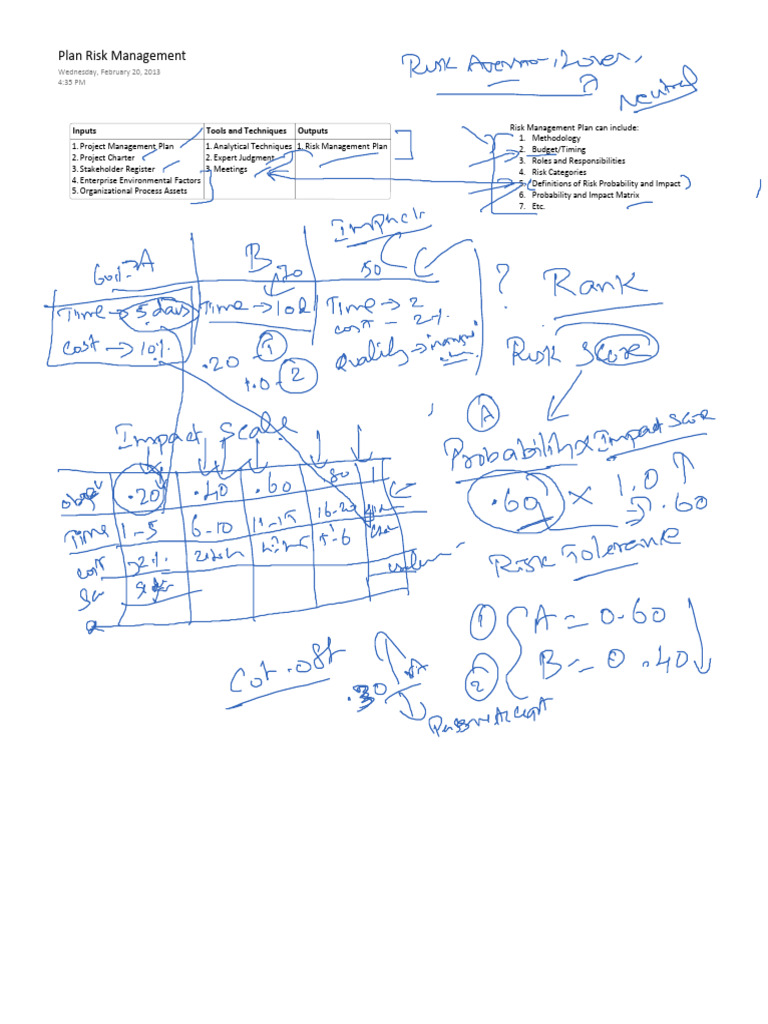 Plan Risk Management
Wednesday, February 20, 2013
4:35 PM
Risk Averse, Lover,
Neutral
Inputs Tools and Techniques Outputs
1. Project Management Plan 1. Analytical Techniques 1. Risk Management Plan
2. Project Charter 2. Expert Judgment
3. Stakeholder Register 3. Meetings
4. Enterprise Environmental Factors
5. Organizational Process Assets
Risk Management Plan can include:
1. Methodology
2. Budget/Timing
3. Roles and Responsibilities
4. Risk Categories
5. (Definitions of Risk Probability and Impact)
6. Probability and Impact Matrix
7. Etc.
A B
50
Time → 5 days Time → 10d Time → 2
Cost → 10%. cost - 2%
Quality →
.20 - 1
1.0 - 2
? Rank
Risk Score
A
Probability x Impact Score
.60 x 1.0
.60
Risk Tolerance
Impact Scale
.20 .40 .60 .80 1
Time 1-5 6-10 11-15 16-20
cost
1 A = 0.60
2 B = 0.40
Cut.off
.30
Passive Accept